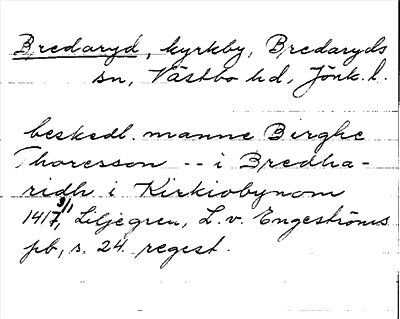 Bredaryd, kyrkby, Bredaryds
sn, Västbo hd, Jönk.l.
beskedl. manne Birghe
Thoresson -- i Bredha-
ridh i Kirkiobynom
1417 3/1, Liljegren, L. v. Engeströms
pb, s. 24. regest.